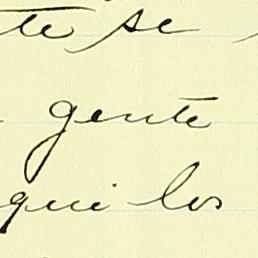 te se
gente
qui los